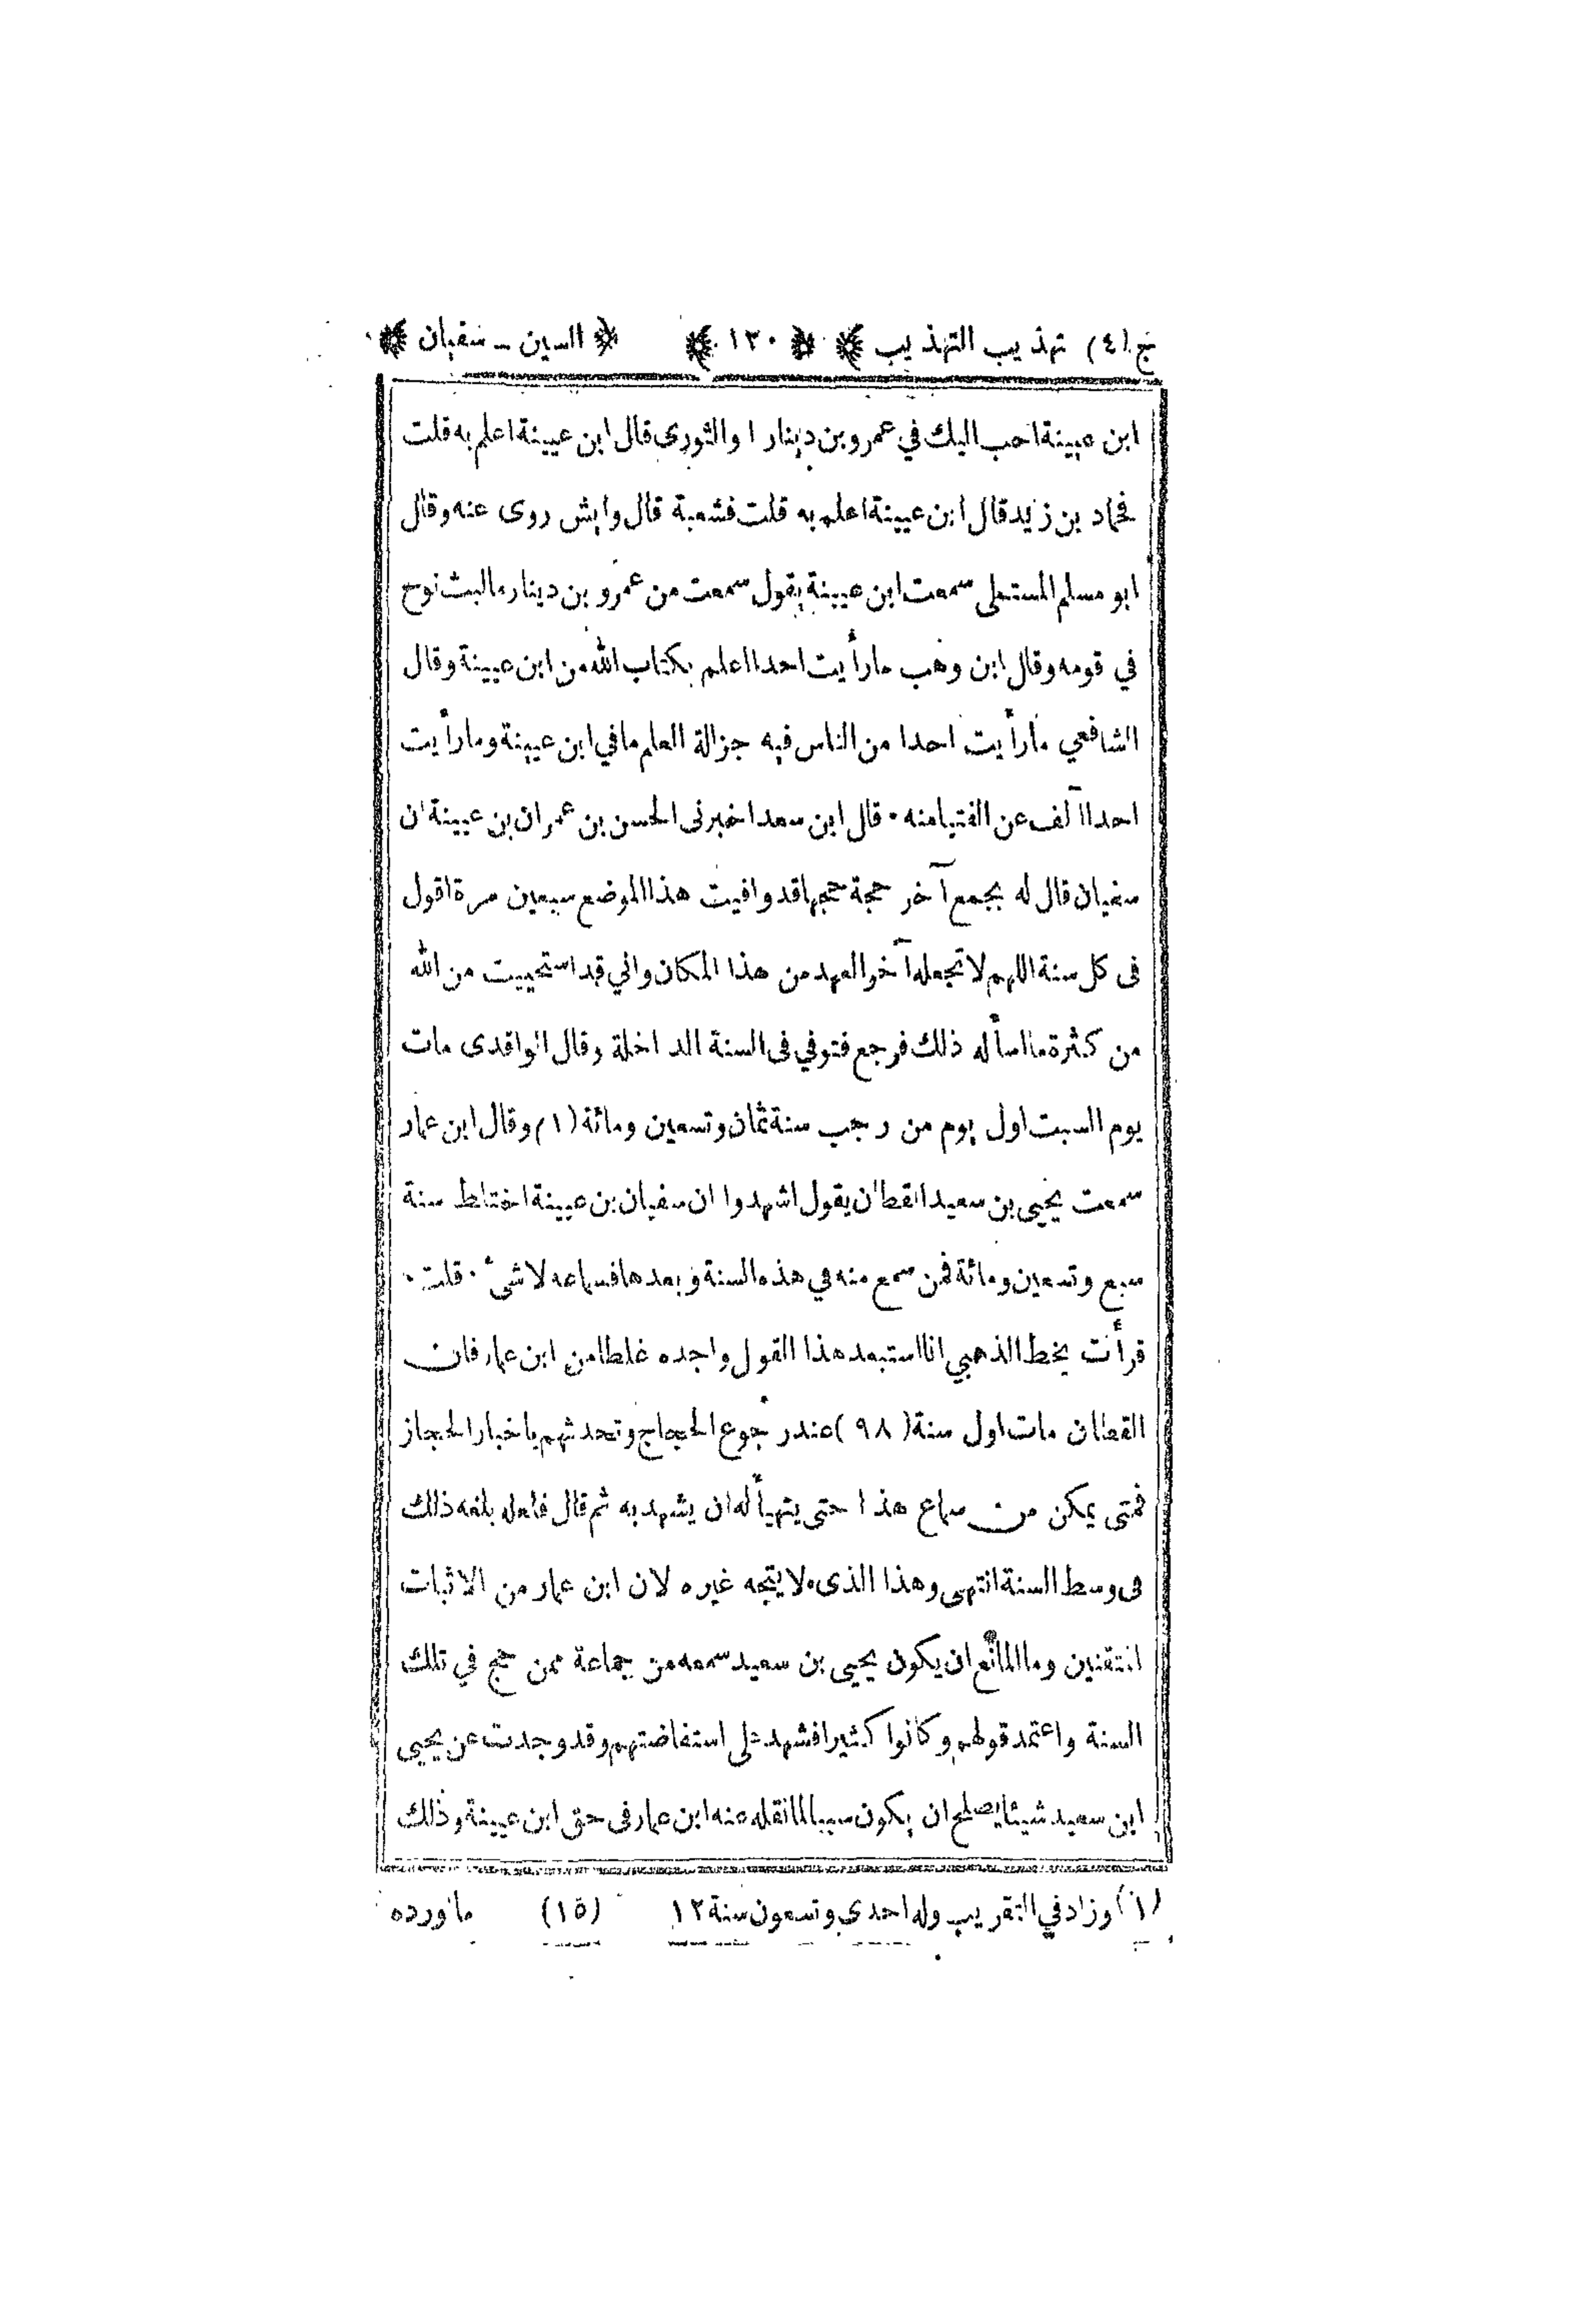 ج (٤) تهذيب التهذيب ﴿ ١٢٠ ﴾ ﴿ السين - سفيان ﴾
ابن عيينة احب اليك في عمرو بن دينار او الثورى قال ابن عيينة اعلم به قلت
فحماد بن زيد قال ابن عيينة اعلم به قلت فشعبة قال وايش روى عنه وقال
ابو مسلم المستملى سمعت ابن عيينة يقول سمعت من عمرو بن دينار مالبث نوح
في قومه وقال ابن وهب مارأيت احدا اعلم بكتاب الله من ابن عيينة وقال
الشافعي مارأيت احدا من الناس فيه جزالة العلم مافي ابن عيينة ومارأيت
احدا آكف عن الفتيا منه ٠ قال ابن سعد اخبرنى الحسن بن عمران بن عيينة ان
سفيان قال له بجمع آخر حجة حجها قد وافيت هذا الموضع سبعين مرة اقول
فى كل سنة اللهم لا تجعله آخر العهد من هذا المكان واني قد استحييت من الله
من كثرة ما اسأله ذلك فرجع فتوفي فى السنة الداخلة وقال الواقدى مات
يوم السبت اول يوم من رجب سنة ثمان وتسعين ومائة (١) وقال ابن عمار
سمعت يحيى بن سعيد القطان يقول اشهدوا ان سفيان بن عيينة اختلط سنة
سبع وتسعين ومائة فمن سمع منه في هذه السنة وبعدها فسماعه لا شئ ٠ قلت ٠
قرأت بخط الذهبي انا استبعد هذا القول واجده غلطا من ابن عمار فان
القطان مات اول سنة (٩٨) عند رجوع الحجاج وتحدثهم باخبار الحجاز
فمتى يمكن من سماع هذا حتى يتهيأ له ان يشهد به ثم قال فلعله بلغه ذلك
فى وسط السنة انتهى وهذا الذى لا يتجه غيره لان ابن عمار من الاثبات
المتقنين وما المانع ان يكون يحيى بن سعيد سمعه من جماعة ممن حج في تلك
السنة واعتمد قولهم وكانوا كثيرا فشهد على استفاضتهم وقد وجدت عن يحيى
ابن سعيد شيئا يصلح ان يكون سببا لما نقله عنه ابن عمار فى حق ابن عيينة وذلك
(١) وزاد في التقريب وله احدى وتسعون سنة ١٢ (١٥) ما ورده